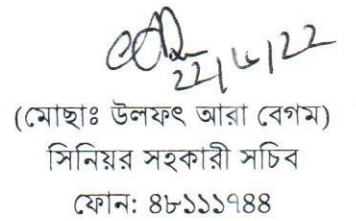 22/6/22
(মোছাঃ উলফৎ আরা বেগম)
সিনিয়র সহকারী সচিব
ফোন: ৪৮১১১৭৪৪